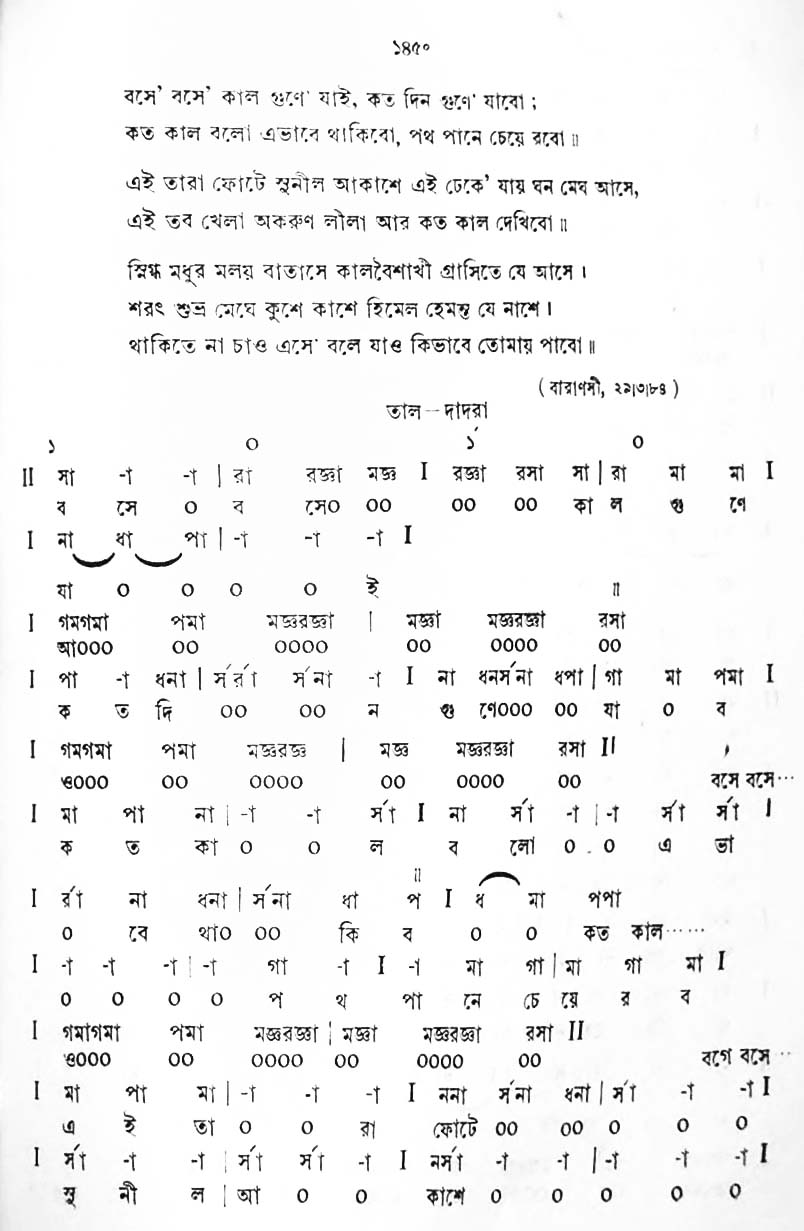 ১৪৫০
বসে' বসে' কাল গুণে' যাই, কত দিন গুণে' যাবো ;
কত কাল বলো এভাবে থাকিবো, পথ পানে চেয়ে রবো ॥
এই তারা ফোটে সুনীল আকাশে এই ঢেকে' যায় ঘন মেঘ আসে,
এই তব খেলা অকরুণ লীলা আর কত কাল দেখিবো ॥
স্নিগ্ধ মধুর মলয় বাতাসে কালবৈশাখী গ্রাসিতে যে আসে ।
শরৎ শুভ্র মেঘে কুশে কাশে হিমেল হেমন্ত যে নাশে ।
থাকিতে না চাও এসে' বলে যাও কিভাবে তোমায় পাবো ॥
( বারাণসী, ২৯।৩।৮৪ )
তাল – দাদরা
১ ০ ১́ ০
II সা -া -া | রা রজ্ঞা মজ্ঞ I রজ্ঞা রসা সা | রা মা মা I
ব সে ০ ব সে০ ০০ ০০ ০০ কা ল গু ণে
I না ধা পা | -া -া -া I
যা ০ ০ ০ ০ ই ॥
I গমগমা পমা মজ্ঞরজ্ঞা | মজ্ঞা মজ্ঞরজ্ঞা রসা
আ০০০ ০০ ০০০০ ০০ ০০০০ ০০
I পা -া ধনা | র্সর্রা র্সনা -া I না ধনর্সনা ধপা | গা মা পমা I
ক ত দি ০০ ০০ ন গু ণে০০০ ০০ যা ০ ব
I গমগমা পমা মজ্ঞরজ্ঞ | মজ্ঞ মজ্ঞরজ্ঞা রসা II
ও০০০ ০০ ০০০০ ০০ ০০০০ ০০ বসে বসে···
I মা পা না | -া -া র্সা I না র্সা -া | -া র্সা র্সা I
ক ত কা ০ ০ ল ব লো ০ . ০ এ ভা
I র্রা না ধনা | র্সনা ধা প I ধ মা পপা
০ বে থা০ ০০ কি ব ০ ০ কত কাল······
I -া -া -া | -া গা -া I -া মা গা | মা গা মা I
০ ০ ০ ০ প থ পা নে চে য়ে র ব
I গমাগমা পমা মজ্ঞরজ্ঞা | মজ্ঞা মজ্ঞরজ্ঞা রসা II
ও০০০ ০০ ০০০০ ০০ ০০০০ ০০ বগে বসে ··
I মা পা মা | -া -া -া I ননা র্সনা ধনা | র্সা -া -া I
এ ই তা ০ ০ রা ফোটে ০০ ০০ ০ ০ ০
I র্সা -া -া | র্সা র্সা -া I নর্সা -া -া | -া -া -া I
সু নী ল | আ ০ ০ কাশে ০ ০ ০ ০ ০